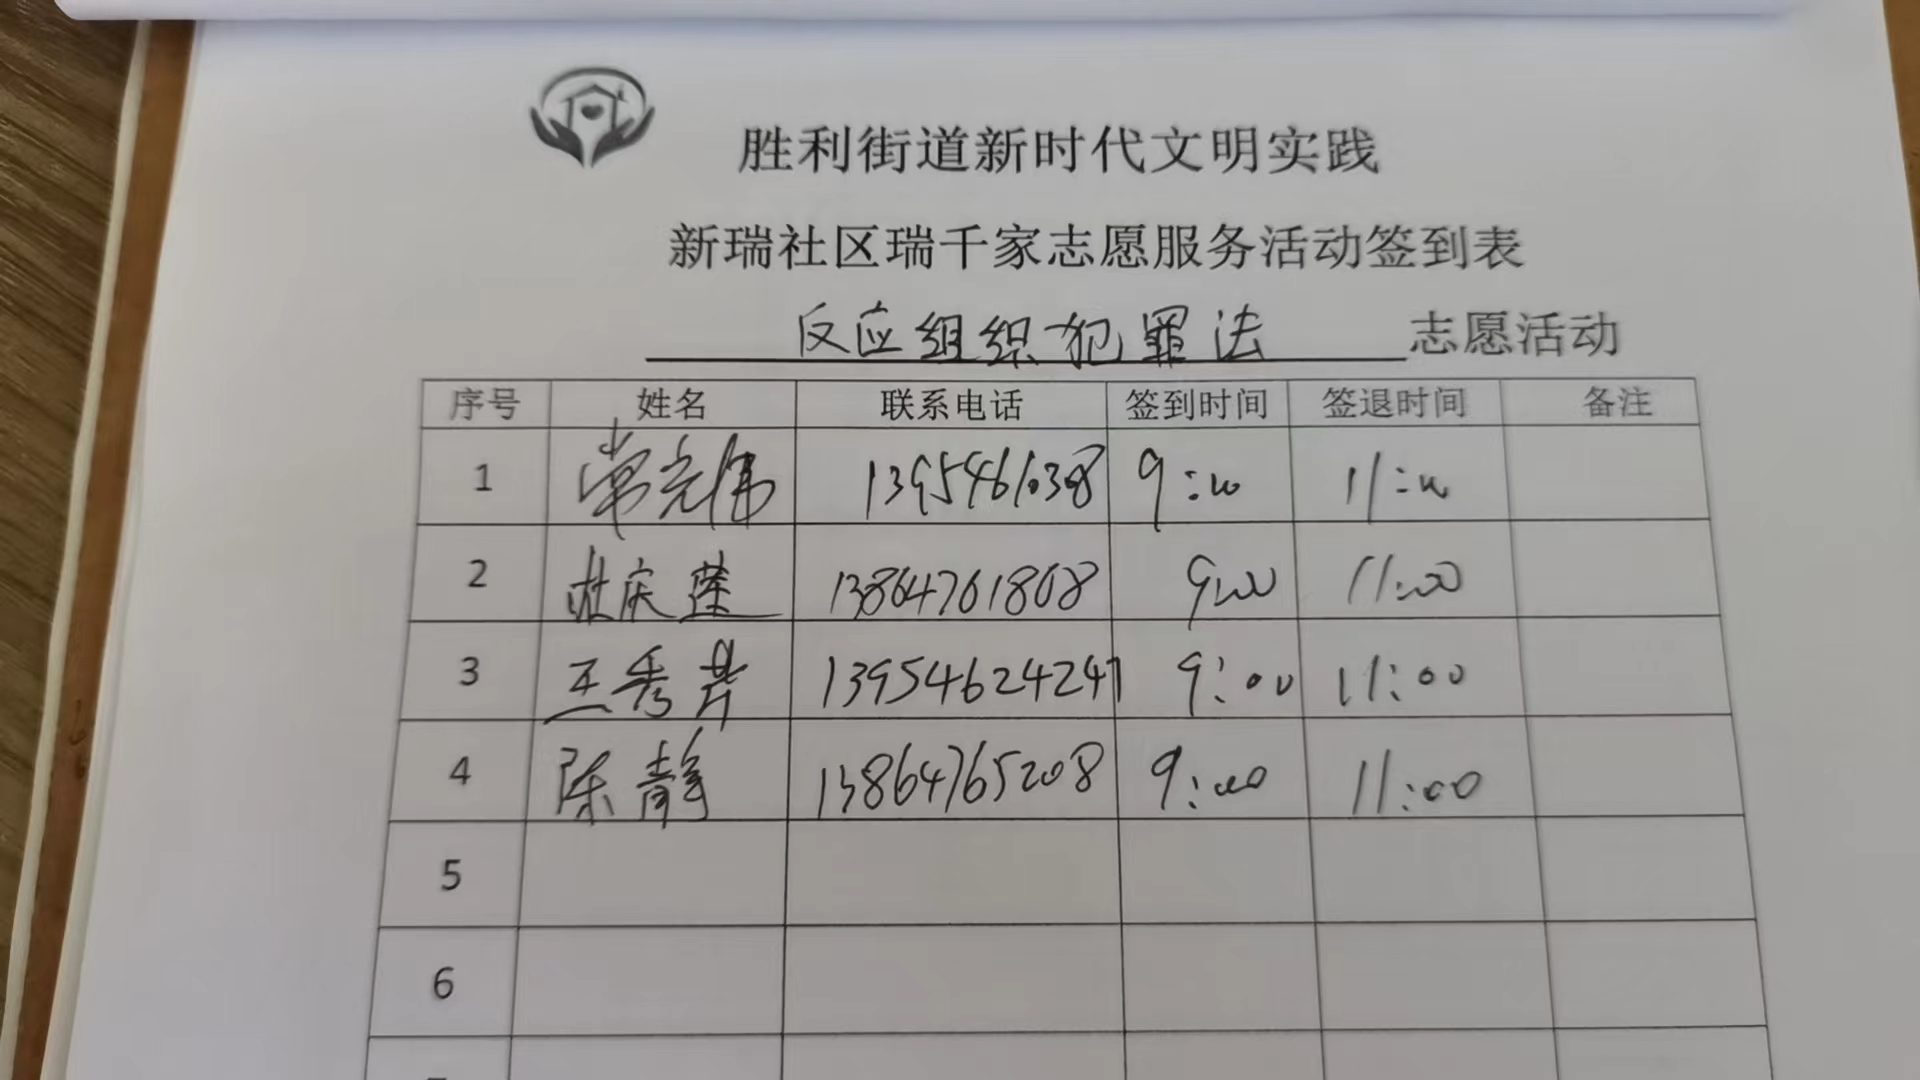 胜利街道新时代文明实践
新瑞社区瑞千家志愿服务活动签到表
反应组织犯罪法 志愿活动
序号 姓名 联系电话 签到时间 签退时间 备注
1 常光伟 9:00 11:00
2 杜庆莲 13864761808 9:00 11:00
3 王秀芹 13954624247 9:00 11:00
4 陈静 13864765208 9:00 11:00
5
6